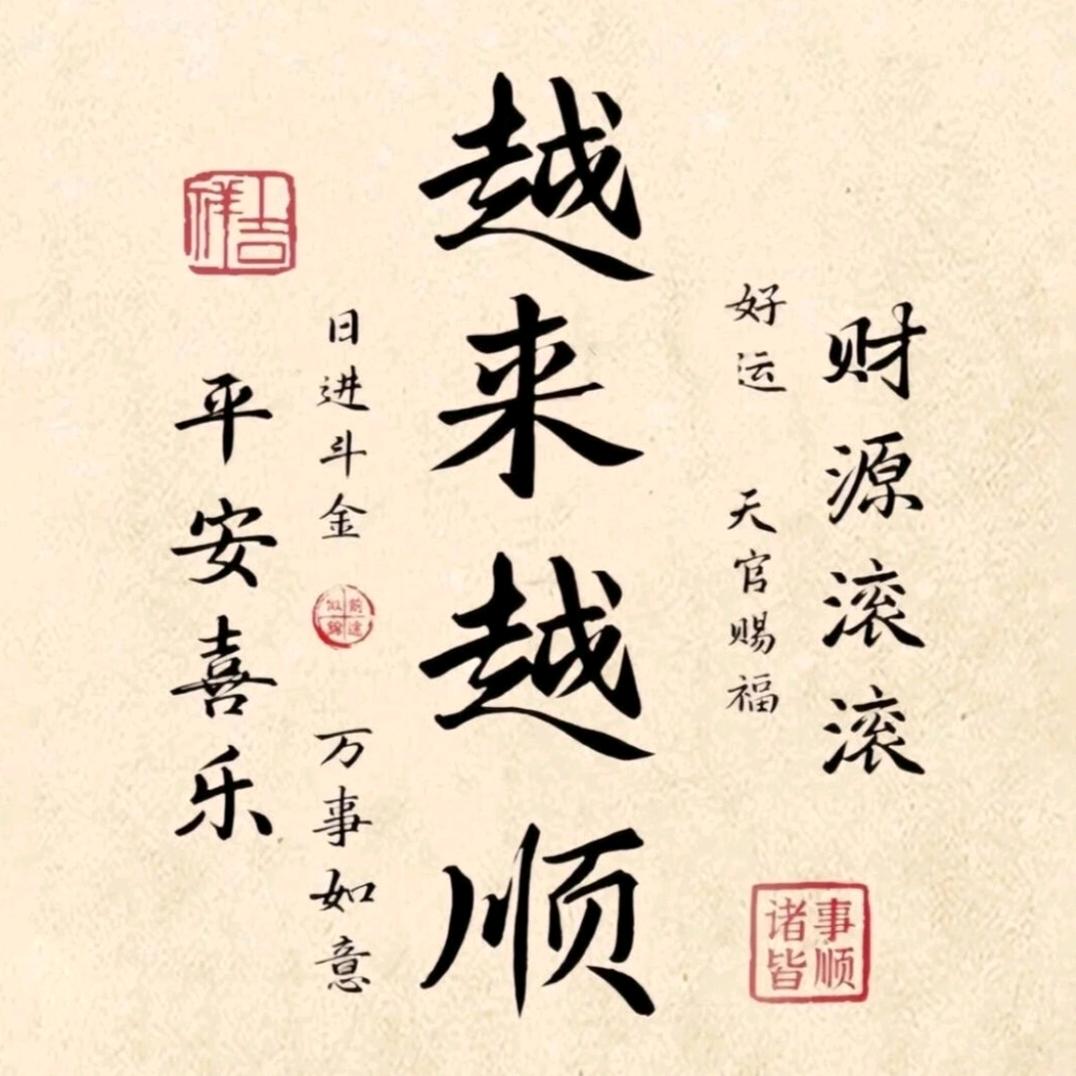 财源滚滚
好运 天官赐福
越来越顺
日进斗金
万事如意
平安喜乐
吉祥
前途似锦
诸事皆顺